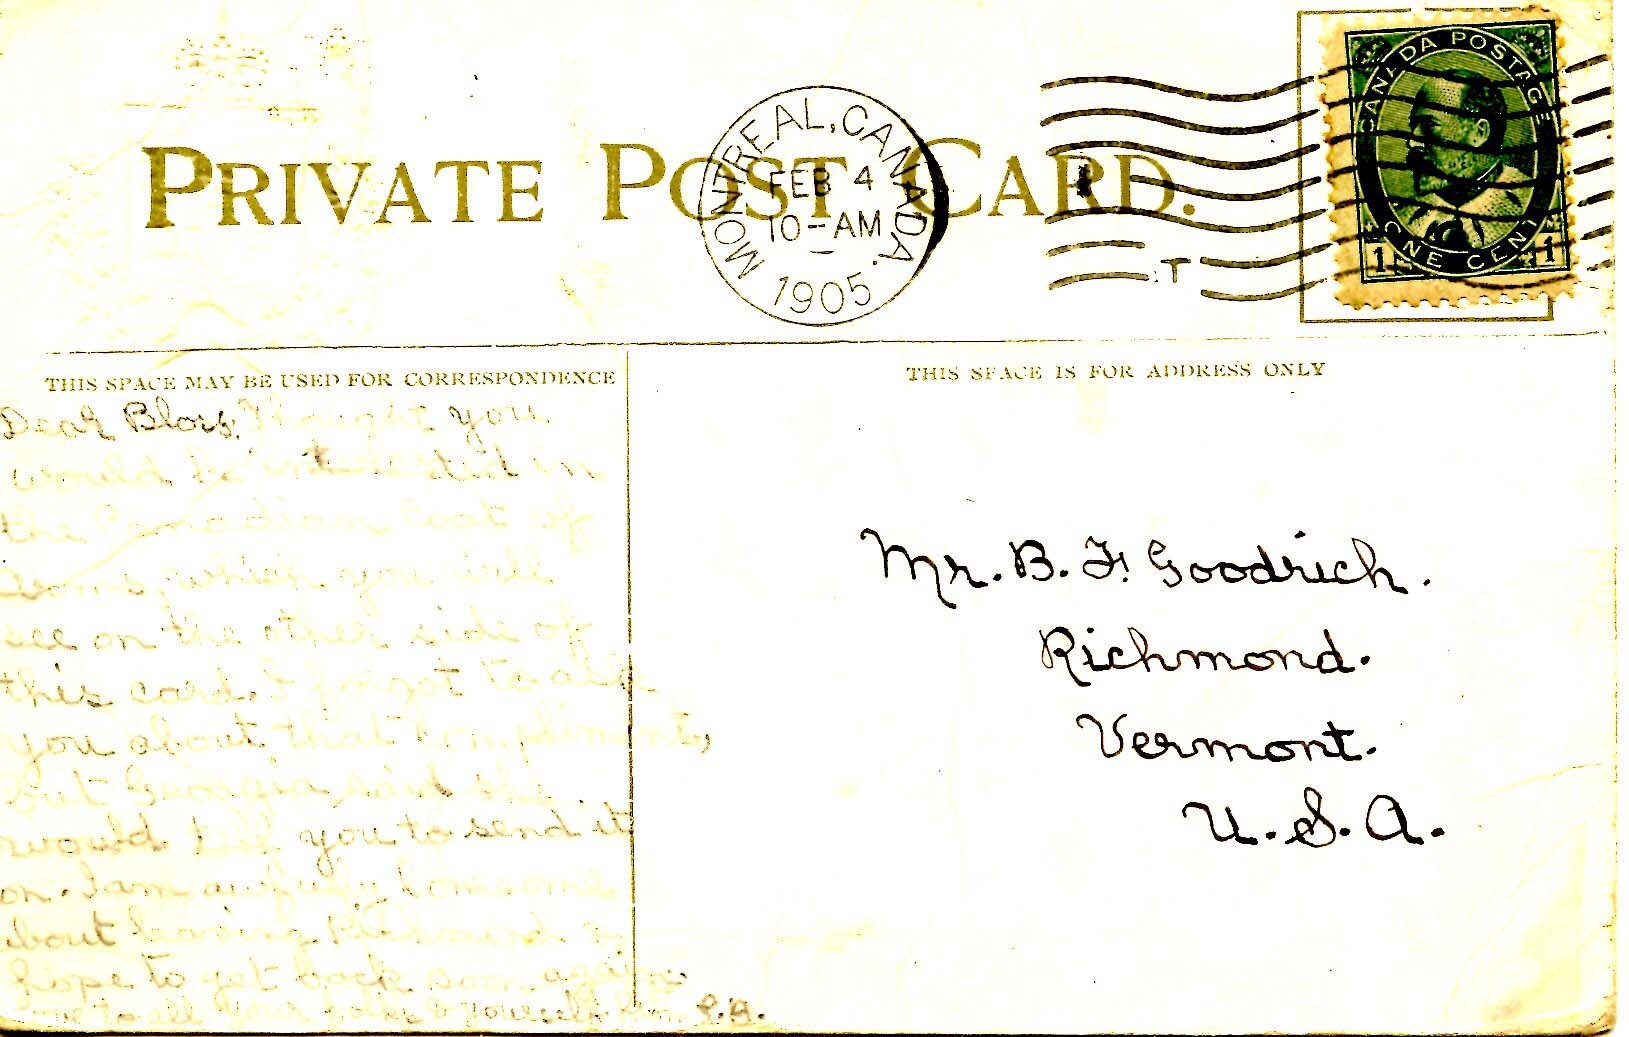 CANADA POSTAGE
1 ONE CENT 1
MONTREAL, CANADA.
FEB 4
10-AM
1905
T
PRIVATE POST CARD.
THIS SPACE MAY BE USED FOR CORRESPONDENCE
THIS SPACE IS FOR ADDRESS ONLY
Dear Thought you
would be interested in
the Canadian Coat of
Arms, which you will
see on the other side of
this card. I forgot to ask
you about that compliment,
but Georgia said she
would tell you to send it
on. I am awfully lonesome
about leaving Richmond &
hope to get back soon again.
Love to all your folks & yourself from
Mr. B. F. Goodrich.
Richmond.
Vermont.
U.S.A.